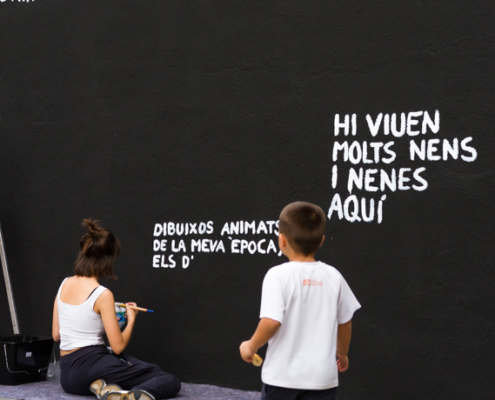 HI VIUEN
MOLTS NENS
I NENES
AQUÍ
DIBUIXOS ANIMATS
DE LA MEVA ÈPOCA,
ELS D'